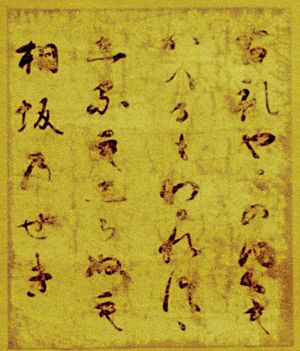 古礼やこのゆくも
かへるもわかれつゝ
しるもしらぬも
相坂乃せき